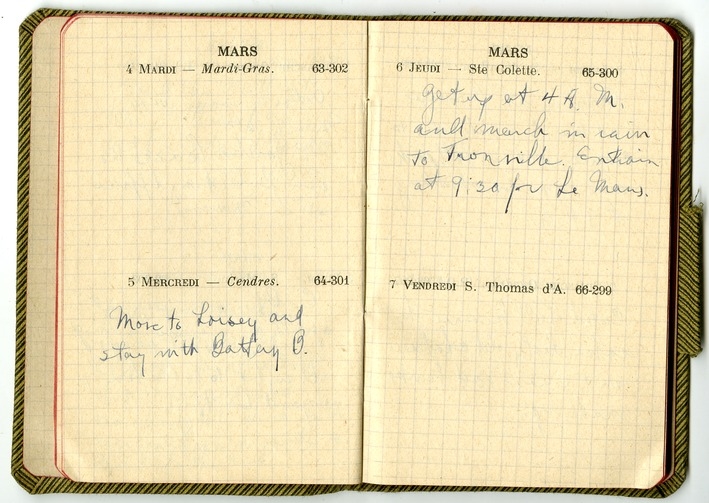 MARS
4 MARDI — Mardi-Gras. 63-302
5 MERCREDI — Cendres. 64-301
Move to Loisey and
stay with Battery B.
MARS
6 JEUDI — Ste Colette. 65-300
Get up at 4 A. M.
and march in rain
to Tronville. Entrain
at 9:30 for Le Mans.
7 VENDREDI S. Thomas d'A. 66-299